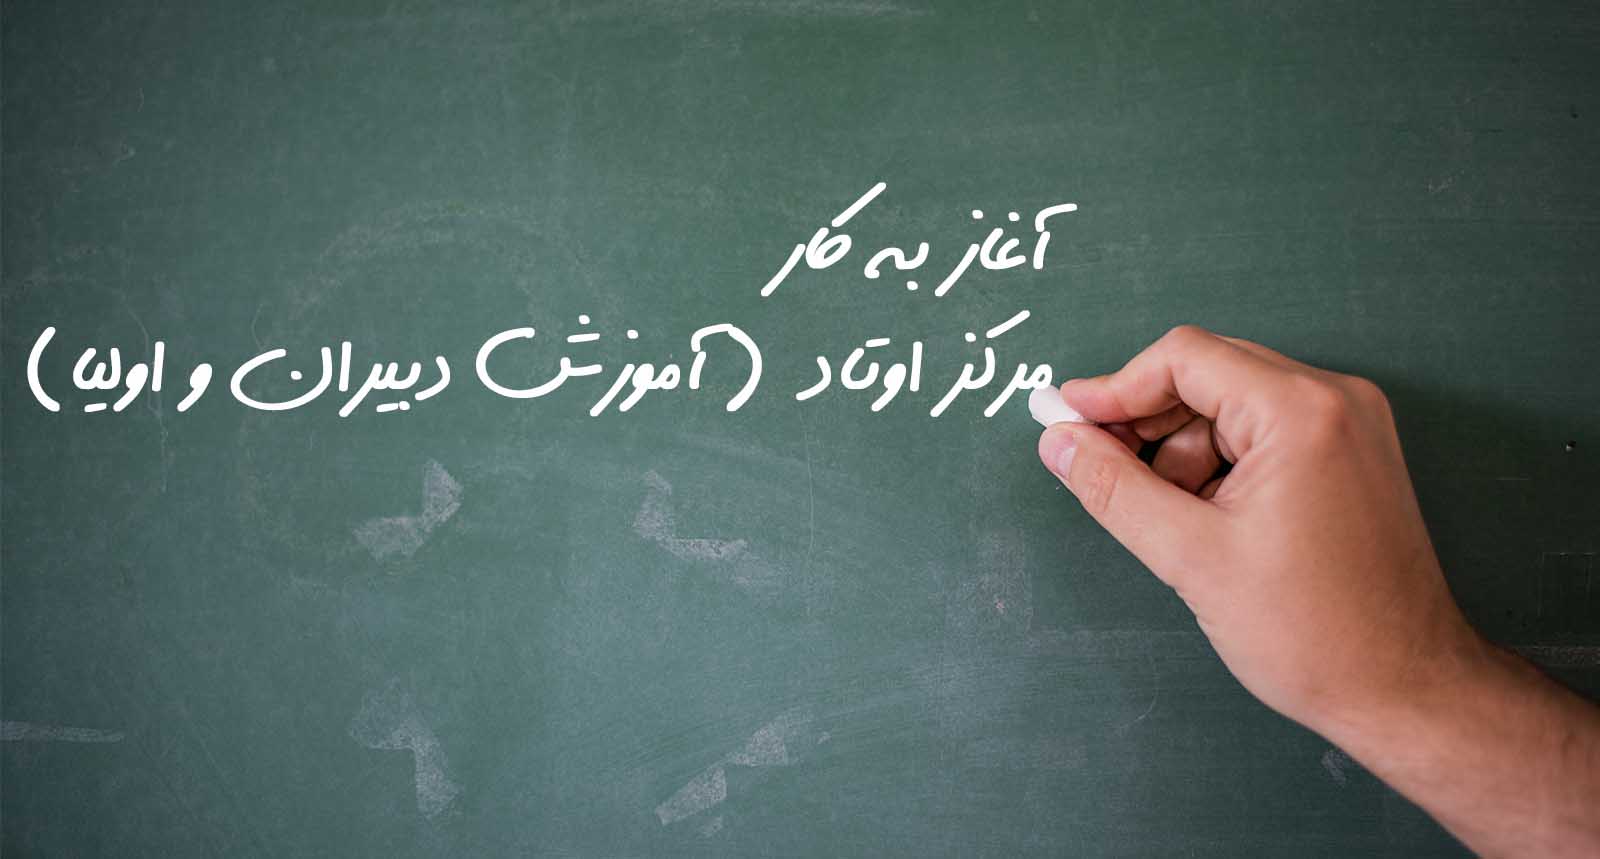 آغاز به کار
مرکز اوتاد (آموزش دبیران و اولیا)